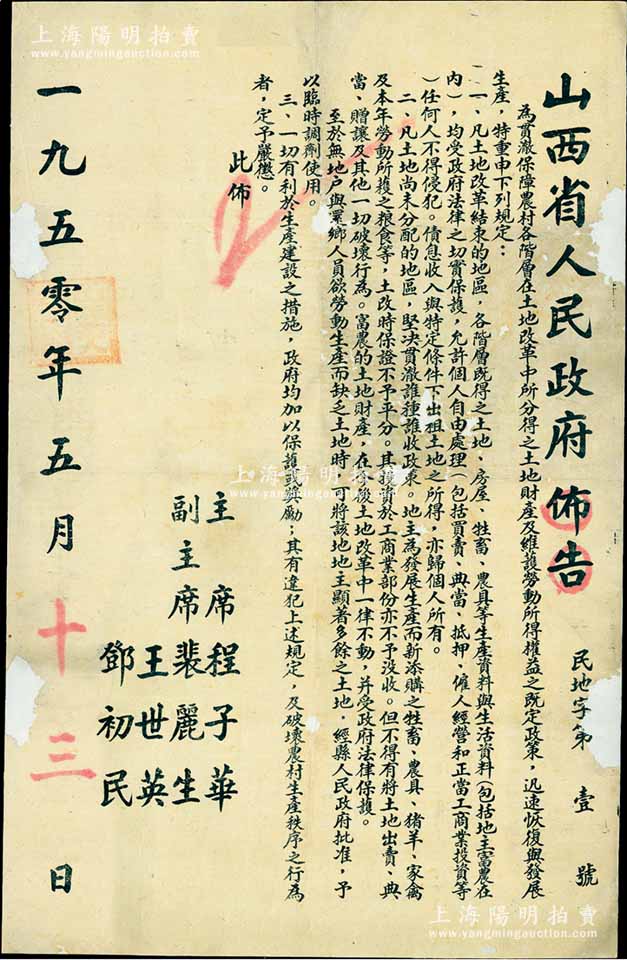 山西省人民政府佈告
民地字第壹號
為貫澈保障農村各階層在土地改革中所分得之土地財產及維護勞動所得權益之既定政策，迅速恢復與發展
生產，特重申下列規定：
一、凡土地改革結束的地區，各階層既得之土地、房屋、牲畜、農具等生產資料與生活資料（包括地主富農在
內），均受政府法律之切實保護，允許個人自由處理（包括買賣、典當、抵押、僱人經營和正當工商業投資等
）任何人不得侵犯。債息收入與特定條件下出租土地之所得，亦歸個人所有。
二、凡土地尚未分配的地區，堅決貫澈誰種誰收政策。地主為發展生產而新添購之牲畜、農具、猪羊、家禽
及本年勞動所獲之粮食等，土改時保證不予平分。其投資於工商業部份亦不予没收。但不得有將土地出賣、典
當、贈讓及其他一切破壞行為。富農的土地財產，在今後土地改革中一律不動，并受政府法律保護。
至於無地户與還鄉人員欲勞動生產而缺乏土地時，可將該地地主顯著多餘之土地，經縣人民政府批准，予
以臨時調劑使用。
三、一切有利於生產建設之措施，政府均加以保護或獎勵；其有違犯上述規定，及破壞農村生產秩序之行為
者，定予嚴懲。
此佈
主席程子華
副主席裴麗生
王世英
鄧初民
一九五零年五月十三日
上海陽明拍賣
www.yangmingauction.com
上海陽明拍賣
www.yangmingauction.com
上海陽明拍賣
www.yangmingauction.com